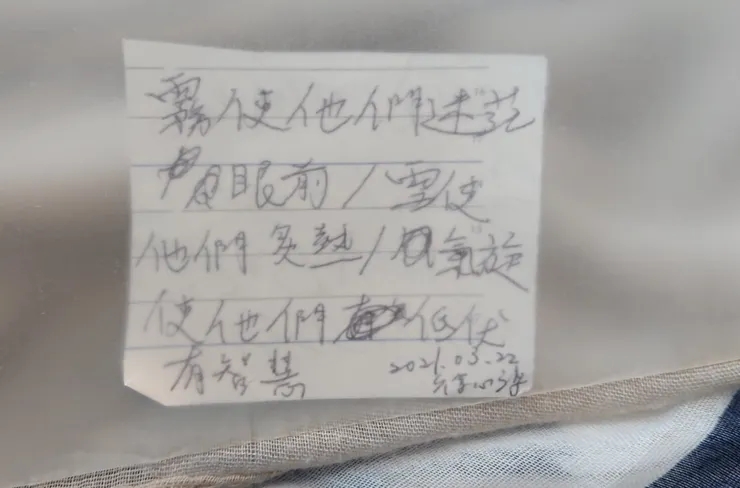 霧使他們迷茫
眼前/雪使
他們炙熱/氣旋
使他們低伏
有智慧
2021.03.22